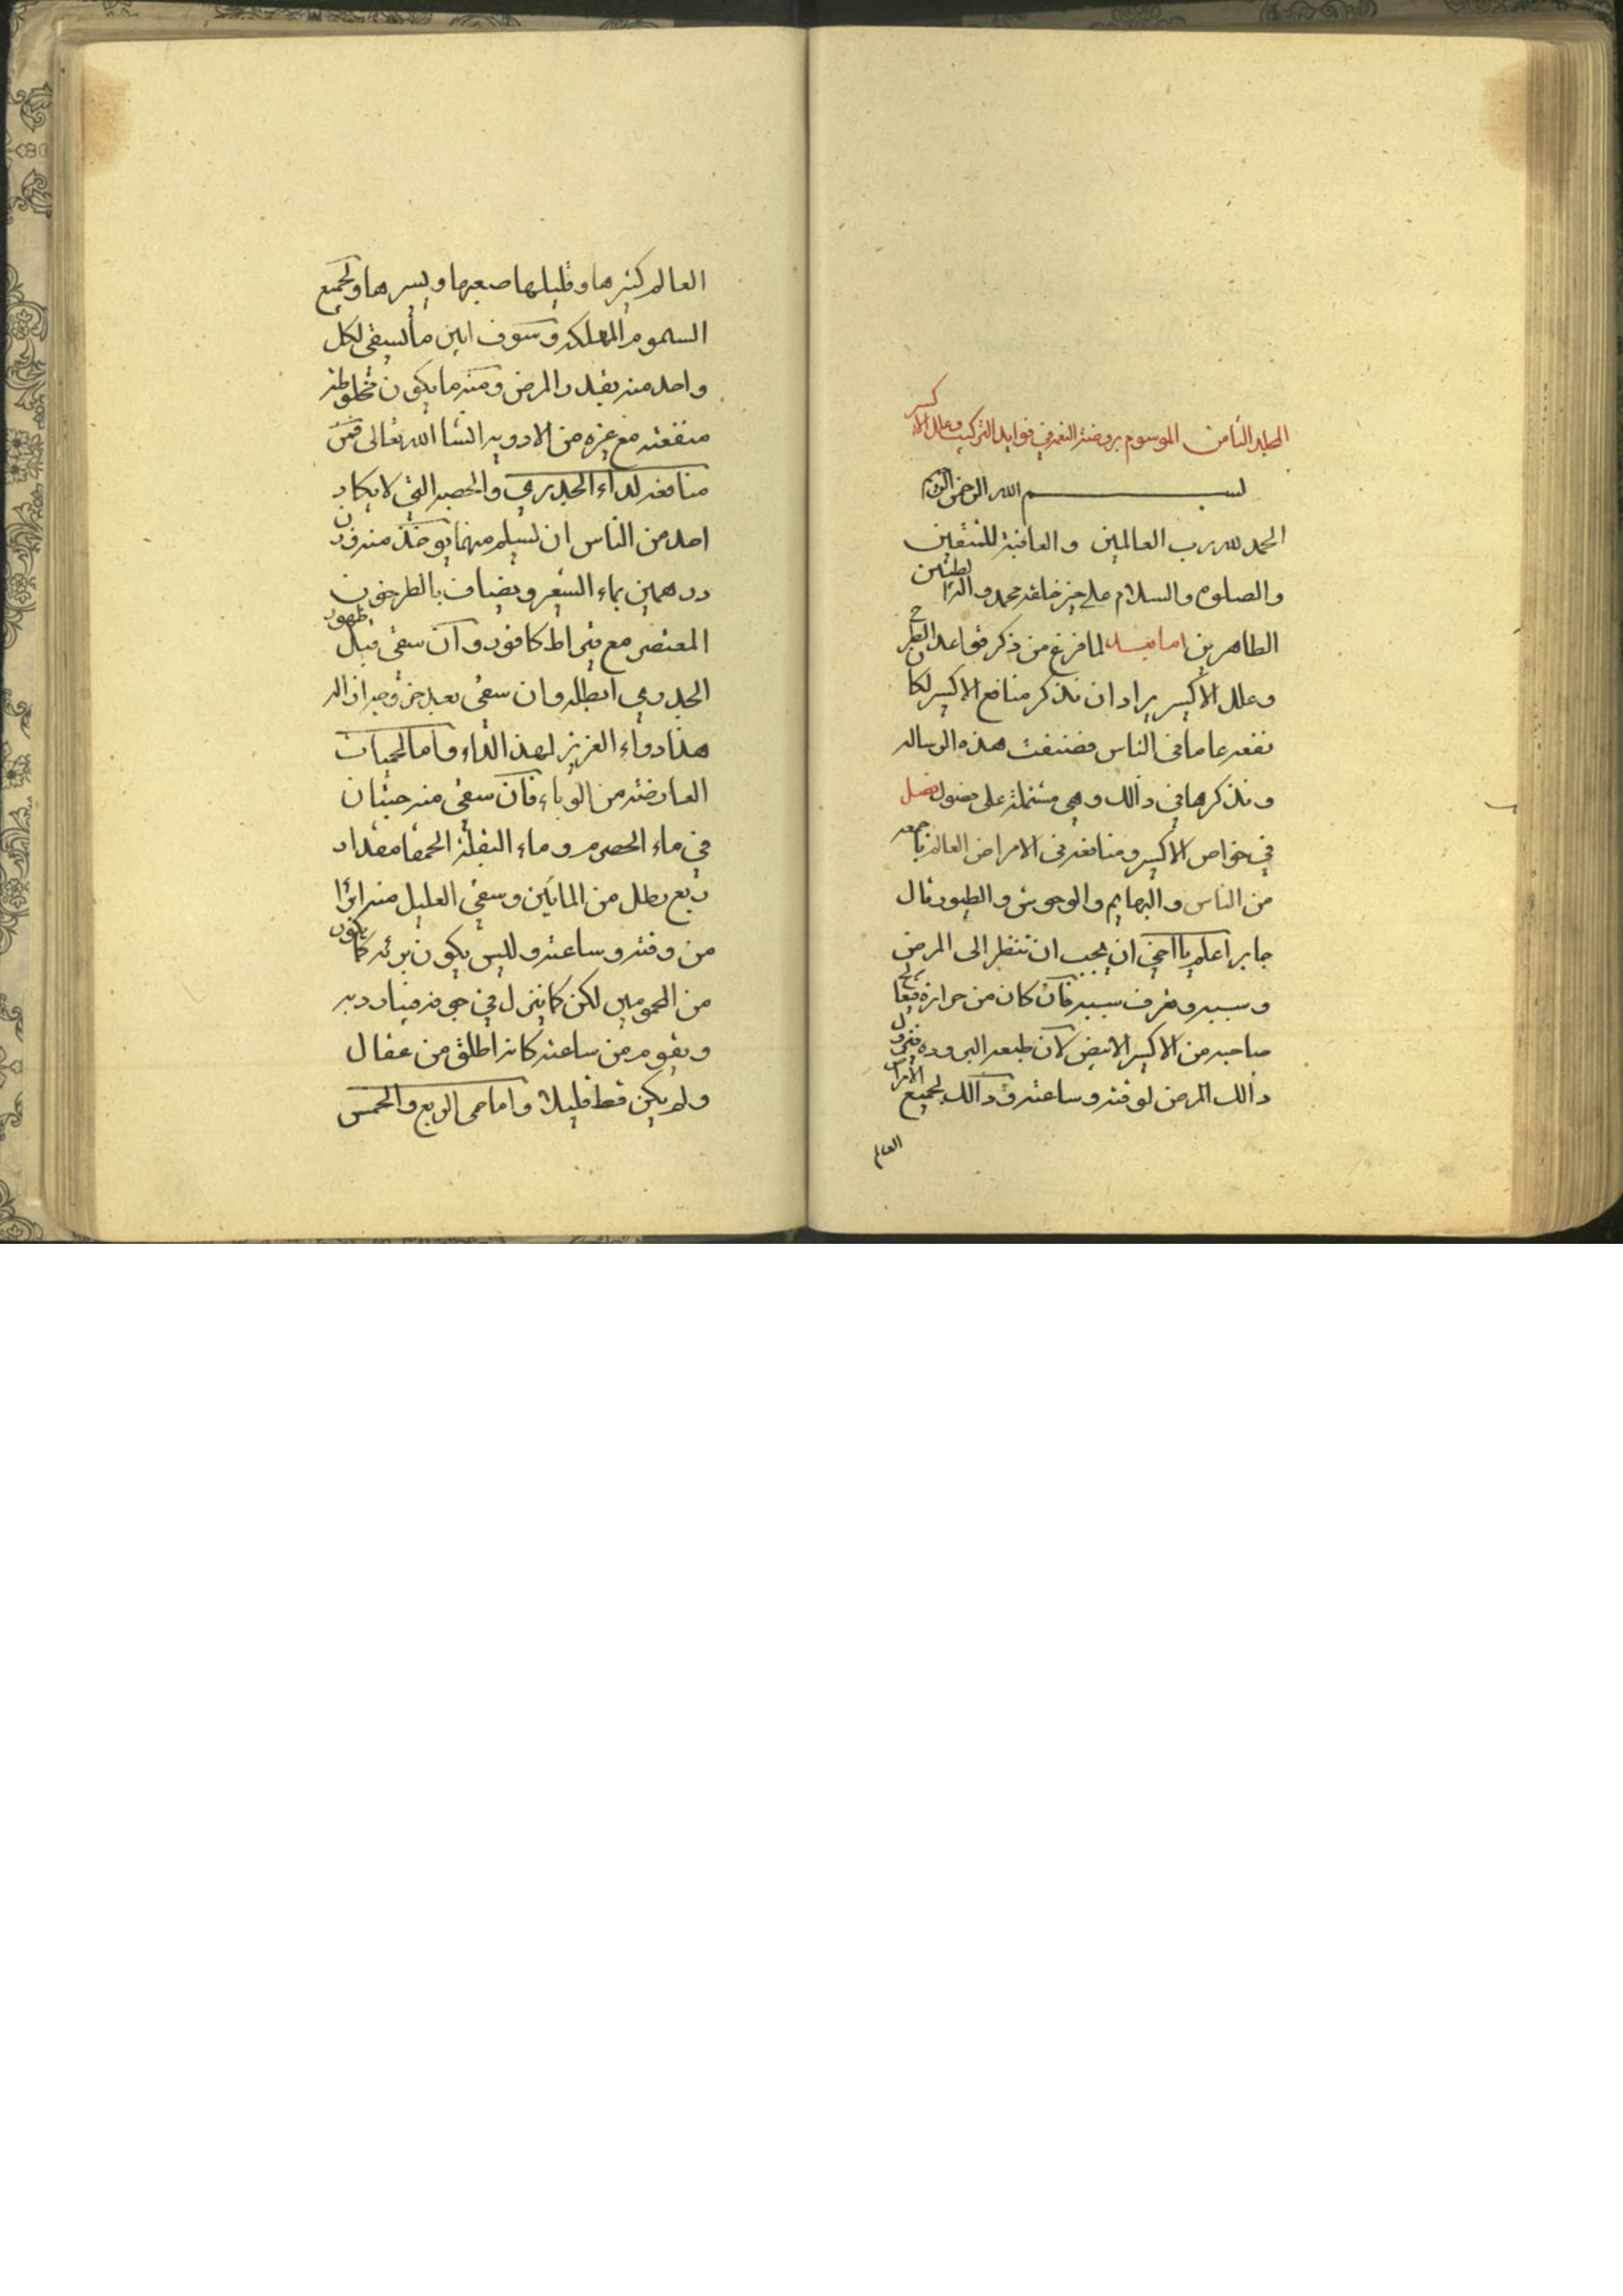 المجلد الثامن الموسوم بروضة النعم في فوايد التركيب وعلل الاكسير
بسم الله الرحمن الرحيم
الحمد لله رب العالمين والعاقبة للمتقين
والصلوه والسلام على خير خلقه محمد واله الطيبين
الطاهرين اما بعد لما فرغ من ذكر قواعد الطرح
وعلل الاكسير يراد ان نذكر منافع الاكسير لكان
نفعه عاما في الناس فصنفت هذه الرساله
ونذكرها في ذالك وهي مشتملة على فصول فصل
في خواص الاكسير ومنافعه في الامراض العالم باجمعه
من الناس والبهايم والوحوش والطيور قال
جابر اعلم يا اخي ان يجب ان تنظر الى المرض
وسببه وتعرف سببه فان كان من حرارة فيعالج
صاحبه من الاكسير الابيض لان طبعه البروده فيزول
ذالك المرض لوقته وساعته وذالك لجميع الامراض
العالم
العالم كثيرها وقليلها صعبها ويسرها ولجميع
السموم المهلكه وسوف ابين ما يسقى لكل
واحد منه بقدر المرض ومنه ما يكون مخلوطة
منفعته مع غيره من الادويه انشا الله تعالى فمن
منافعه لداء الجدري والحصبه التي لا يكاد
احد من الناس ان يسلم منهما يوخذ منه وزن
درهمين بماء الشعير ويضاف بالطرخون
المعتصر مع قيراط كافور وان سقى قبل ظهور
الجدري ابطله وان سقى بعد خروجه ازاله
هذا دواء العزيز لهذ الداء واما الحميات
العارضة من الوباء فان سقى منه حبتان
في ماء الحصرم وماء البقلة الحمقا مقدار
ربع رطل من المائين وسقى العليل منه ابرا
من وقته وساعته وليس يكون برئه كما يكون
من المحمومين لكن كما ينزل في جوفه فيبادر به
ويقوم من ساعته كانه اطلق من عقال
ولم يكن قط قليلا واما حمى الربع والخمس